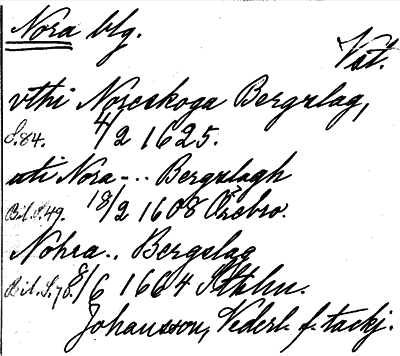 Nora blg.
Vstl.
vthi Noreskoga Bergzlag,
S. 84. 4/2 1625.
uti Nora--.. Bergzlagh
Bil. S. 49. 18/2 1608 Örebro.
Nohra.. Bergslag
Bil. S. 78. 8/6 1664 Sthlm.
Johansson, Nederl. f. tackj.